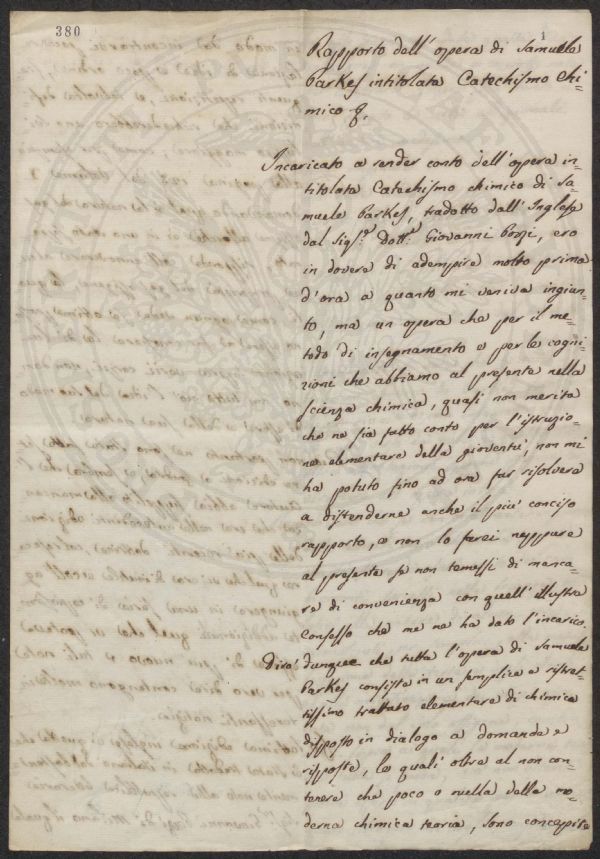 380
1
Rapporto dell'opera di Samuele
Parkes intitolata Catechismo chi=
mico &.
Incaricato a render conto dell'opera in=
titolata Catechismo chimico di Sa=
muele Parkes, tradotto dall'Inglese
dal Sig.r Dott.r Giovanni Pozzi, ero
in dovere di adempire molto prima
d'ora a quanto mi veniva ingiun=
to, ma un opera che per il me=
todo di insegnamento e per le cogni=
zioni che abbiamo al presente nella
scienza chimica, quasi non merita
che ne sia fatto conto per l'istruzio=
ne elementare della gioventù, non mi
ha potuto fino ad ora far risolvere
a distenderne anche il più conciso
rapporto, e non lo farei neppure
al presente se non temessi di manca=
re di convenienza con quell'illustre
Consesso che me ne ha dato l'incarico.
Dirò dunque che tutta l'opera di Samuele
Parkes consiste in un semplice e ristret=
tissimo trattato elementare di chimica
disposto in dialogo a domande e
risposte, le quali oltre al non con=
tenere che poco o nulla della mo=
derna chimica teoria, sono concepite